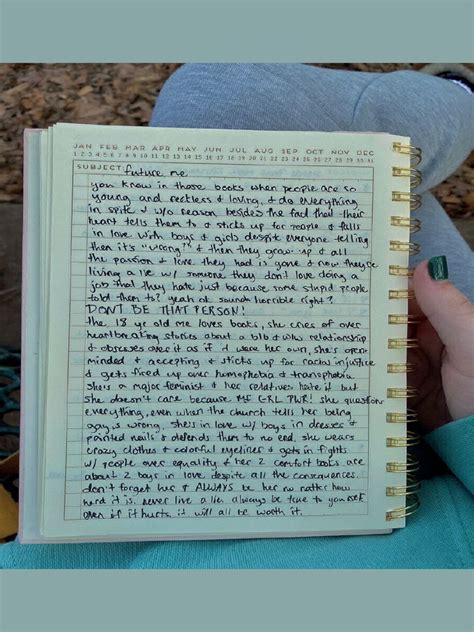 JAN FEB MAR APR MAY JUN JUL AUG SEP OCT NOV DEC
1 2 3 4 5 6 7 8 9 10 11 12 13 14 15 16 17 18 19 20 21 22 23 24 25 26 27 28 29 30 31
SUBJECT: future me
you know in those books when people are so
young and reckless & loving, & do everything
in spite & w/o reason besides the fact that their
heart tells them to & sticks up for people & falls
in love with boys & girls despite everyone telling
them it's "wrong"? & then they grow up & all
the passion & love they had is gone & now they're
living a lie w/ someone they don't love doing a
job that they hate just because some stupid people
told them to? yeah ok sounds horrible right?
DON'T BE THAT PERSON!
the 18 yr old me loves books, she cries of over
heartbreaking stories about a blb & wlw relationship
& obsesses over it as if it were her own, she's open-
minded & accepting & sticks up for racial injustice
& gets fired up over homophobia & transphobia
she's a major feminist & her relatives hate it but
she doesn't care because GRL PWR! she questions
everything, even when the church tells her being
gay is wrong, she's in love w/ boys in dresses &
painted nails & defends them to no end, she wears
crazy clothes & colorful eyeliner & gets in fights
w/ people over equality & her 2 comfort books are
about 2 boys in love despite all the consequences.
don't forget her & ALWAYS be her no matter how
hard it is. never live a lie. always be true to yourself
even if it hurts. it will all be worth it.